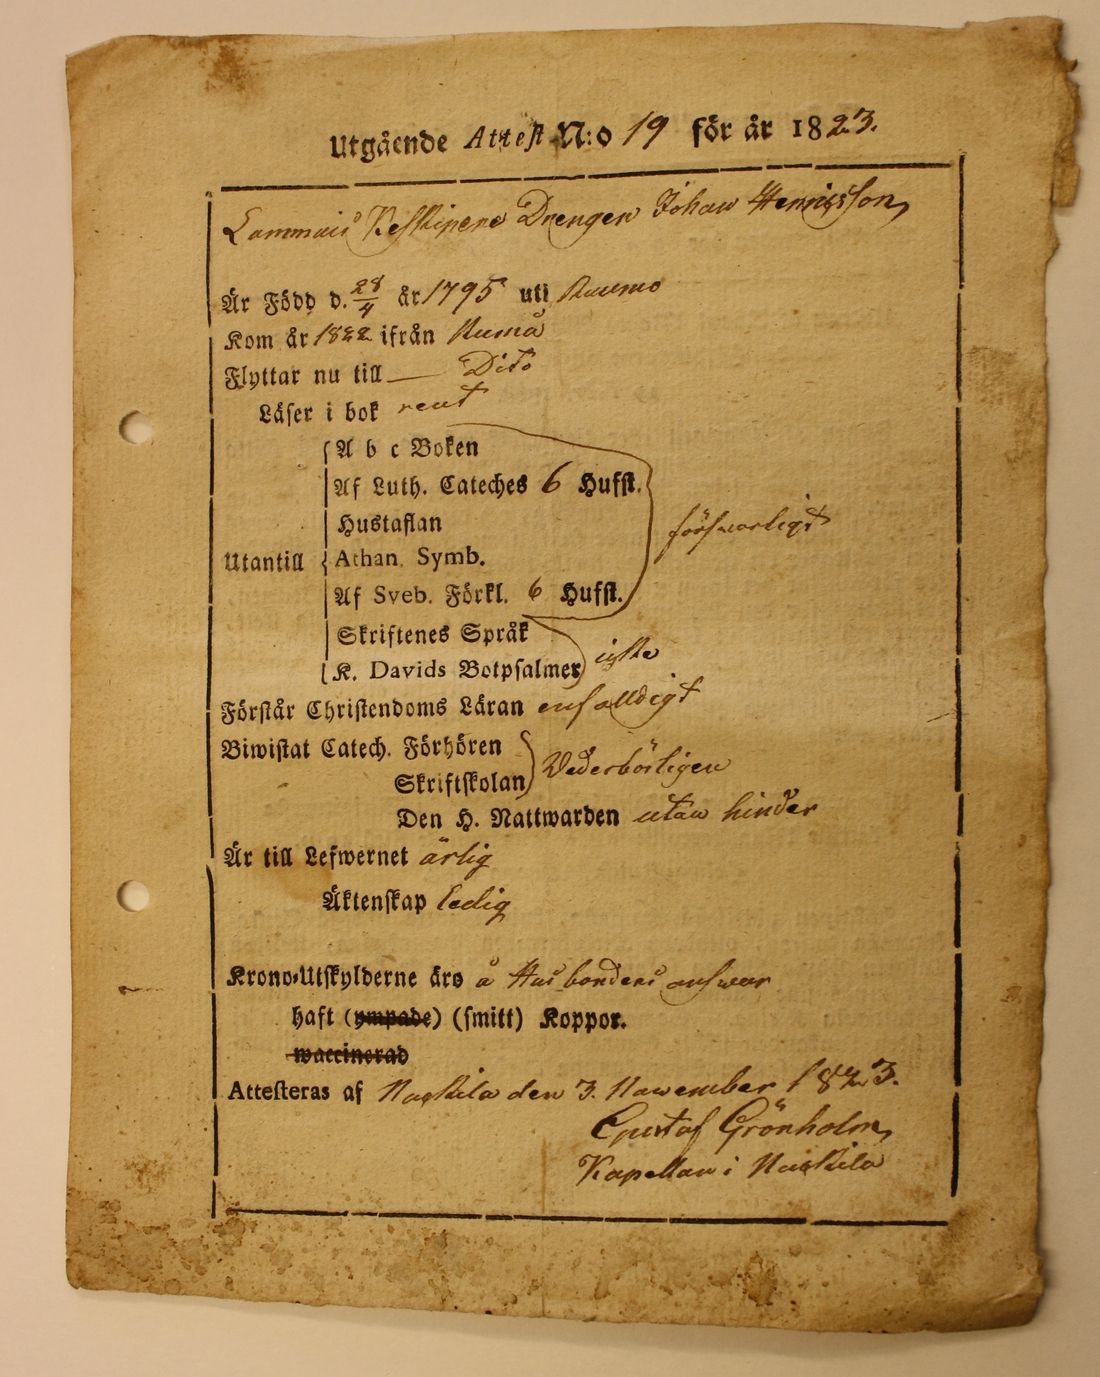 Utgående Attest N:o 19 för år 1823.
Lammais Keskipere Drengen Johan Henricsson
Är Född d. 28/4 år 1795 uti Raumo
Kom år 1822 ifrån Rumå
Flyttar nu till — Dito
Läser i bok rent
A b c Boken
Af Luth. Cateches 6 Hufst.
Hustaflan
försvarligt
Utantill Athan. Symb.
Af Sveb. Förkl. 6 Hufst.
Skriftenes Språk
K. Davids Botpsalmer icke
Förstår Christendoms Läran enfalldigt
Biwistat Catech. Förhören
Skriftskolan Vederbörligen
Den H. Nattwarden utan hinder
Är till Lefwernet ärlig
Äktenskap Ledig
Krono-Utskylderne äro å Husbondens answar
haft (ympade) (smitt) Koppor.
waccinerad
Attesteras af Nackila den 3. November 1823.
Gustaf Grönholm
Kapellan i Nackila